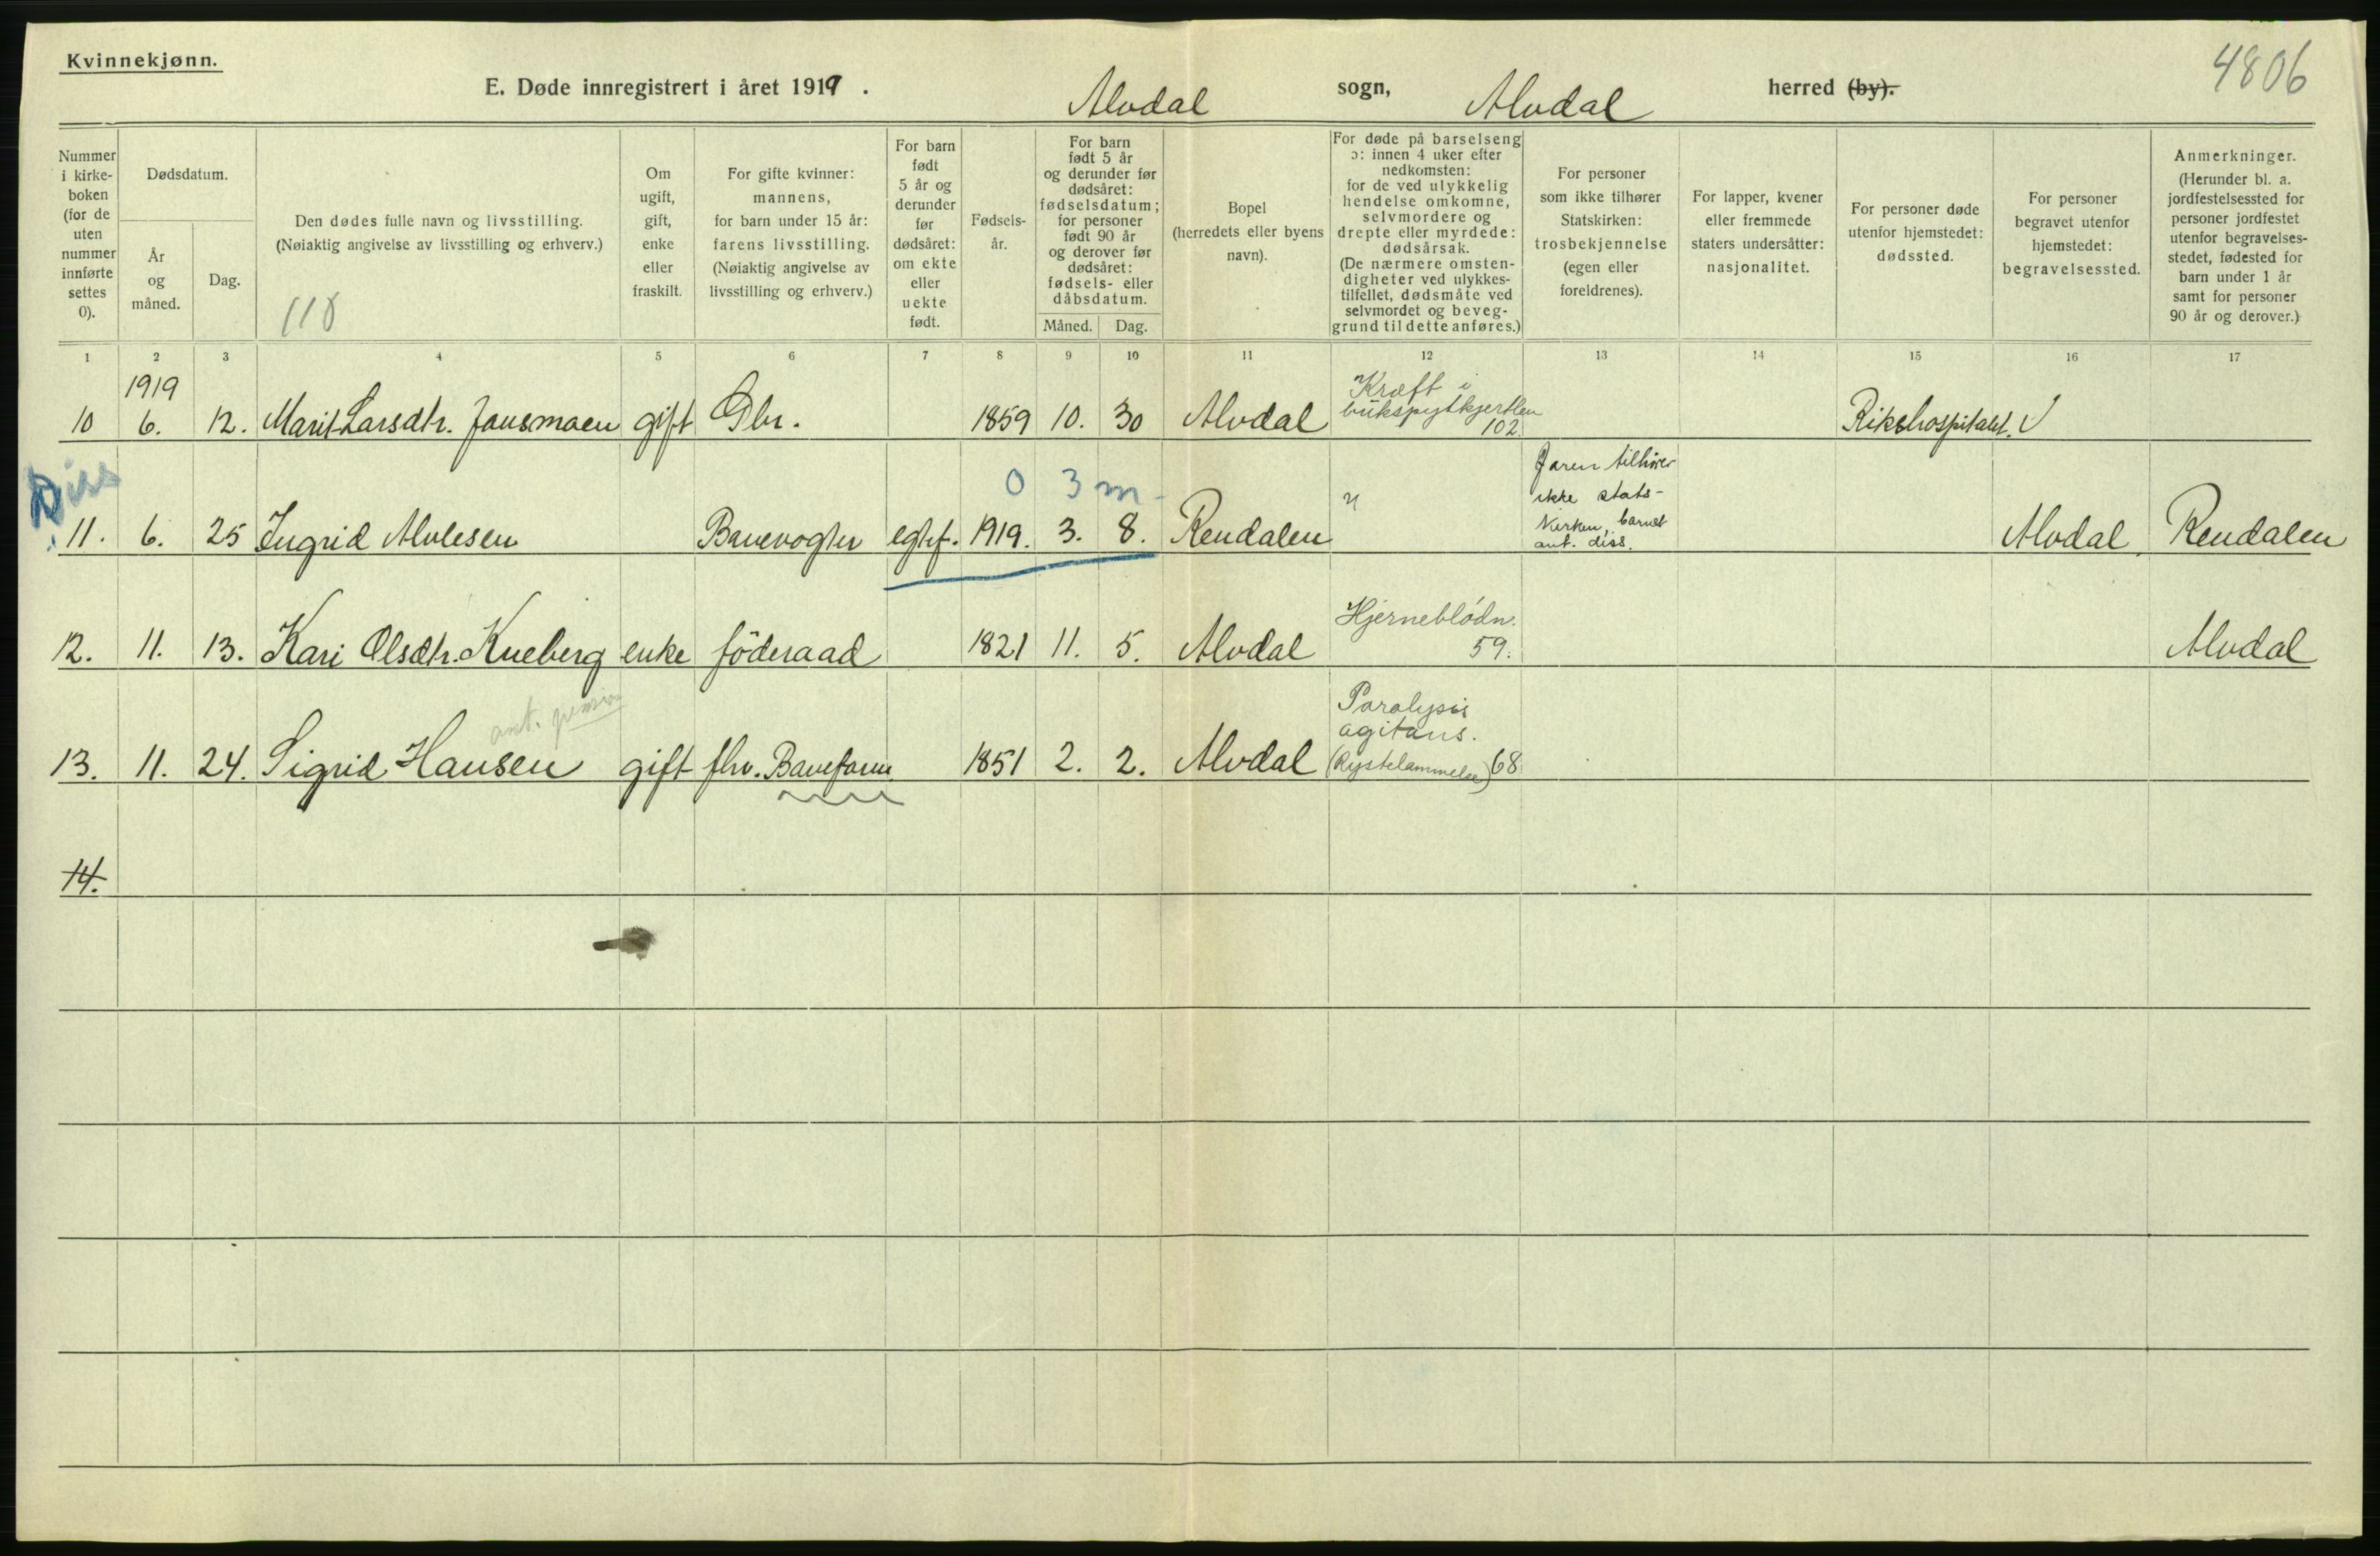 Kvinnekjønn.
4806
E. Døde innregistrert i året 1919. Alvdal sogn, Alvdal herred (by).
Nummer i kirke- boken (for de uten nummer innførte settes 0).
Dødsdatum.
År og måned.
Dag.
Den dødes fulle navn og livsstilling. (Nøiaktig angivelse av livsstilling og erhverv.)
118
Om ugift, gift, enke eller fraskilt.
For gifte kvinner: mannens, for barn under 15 år: farens livsstilling. (Nøiaktig angivelse av livsstilling og erhverv.)
For barn født 5 år og derunder før dødsåret: om ekte eller uekte født.
Fødsels- år.
For barn født 5 år og derunder før dødsåret: fødselsdatum; for personer født 90 år og derover før dødsåret: fødsels- eller dåbsdatum.
Måned. Dag.
Bopel (herredets eller byens navn).
For døde på barselseng ɔ: innen 4 uker efter nedkomsten: for de ved ulykkelig hendelse omkomne, selvmordere og drepte eller myrdede: dødsårsak. (De nærmere omsten- digheter ved ulykkes- tilfellet, dødsmåte ved selvmordet og beveg- grund til dette anføres.)
For personer som ikke tilhører Statskirken: trosbekjennelse (egen eller foreldrenes).
For lapper, kvener eller fremmede staters undersåtter: nasjonalitet.
For personer døde utenfor hjemstedet: dødssted.
For personer begravet utenfor hjemstedet: begravelsessted.
Anmerkninger. (Herunder bl. a. jordfestelsessted for personer jordfestet utenfor begravelses- stedet, fødested for barn under 1 år samt for personer 90 år og derover.)
1 2 3 4 5 6 7 8 9 10 11 12 13 14 15 16 17
1919
Kræft i
bukspytkjertlen
10 6. 12. Marit Larsdtr. Jansmoen gift Gbr. 1859 10. 30 Alvdal 102. Rikshospitalet.
Diss
0 3 m
Faren tilhører
ikke stats-
kirken, barnet
ant. diss.
11. 6. 25 Ingrid Banevogter egtef. 1919. 3. 8. Rendalen Alvdal. Rendalen
Hjerneblødn.
12. 11. 13. Kari Olsdtr. Kneberg enke föderaad 1821 11. 5. Alvdal 59. Alvdal
ant. pension
Paralysis
agitans.
13. 11. 24. Sigrid Hansen gift fhv. Baneform. 1851 2. 2. Alvdal (Rystelammelse) 68
14.